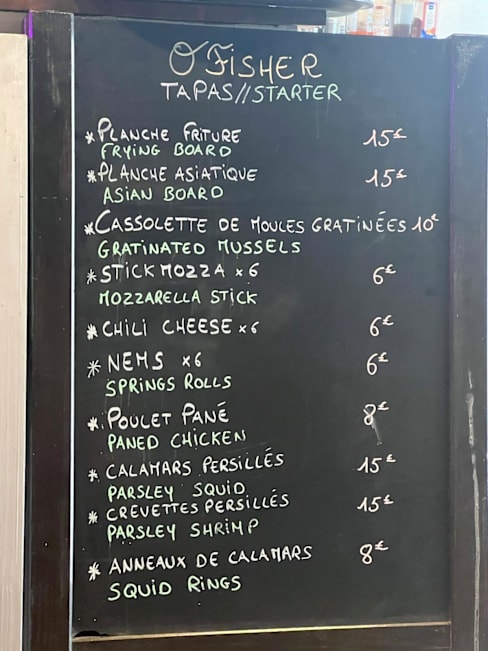 O'FISHER
TAPAS//STARTER
*PLANCHE FRITURE 15€
FRYING BOARD
*PLANCHE ASIATIQUE 15€
ASIAN BOARD
*CASSOLETTE DE MOULES GRATINÉES 10€
GRATINATED MUSSELS
*STICK MOZZA x6 6€
MOZZARELLA STICK
*CHILI CHEESE x6 6€
*NEMS x6 6€
SPRINGS ROLLS
*POULET PANÉ 8€
PANED CHICKEN
*CALAMARS PERSILLÉS 15€
PARSLEY SQUID
*CREVETTES PERSILLÉS 15€
PARSLEY SHRIMP
*ANNEAUX DE CALAMARS 8€
SQUID RINGS